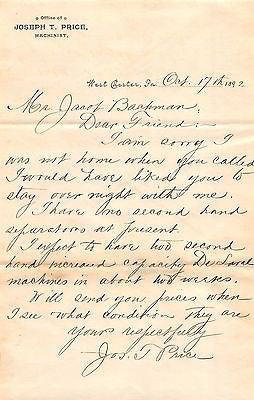 Office of
JOSEPH T. PRICE,
MACHINIST,
West Center, Ia Oct. 17th 1892
Mr. Jacob Baahman;
Dear Friend:-
I am sorry I
was not home when you called
I would have liked you to
stay over night with me.
I have no second hand
separators at present.
I expect to have two second
hand increased capacity De Laval
machines in about two weekes.
Will send you prices when
I see what condition they are
yours respectfully
Jos. T Price